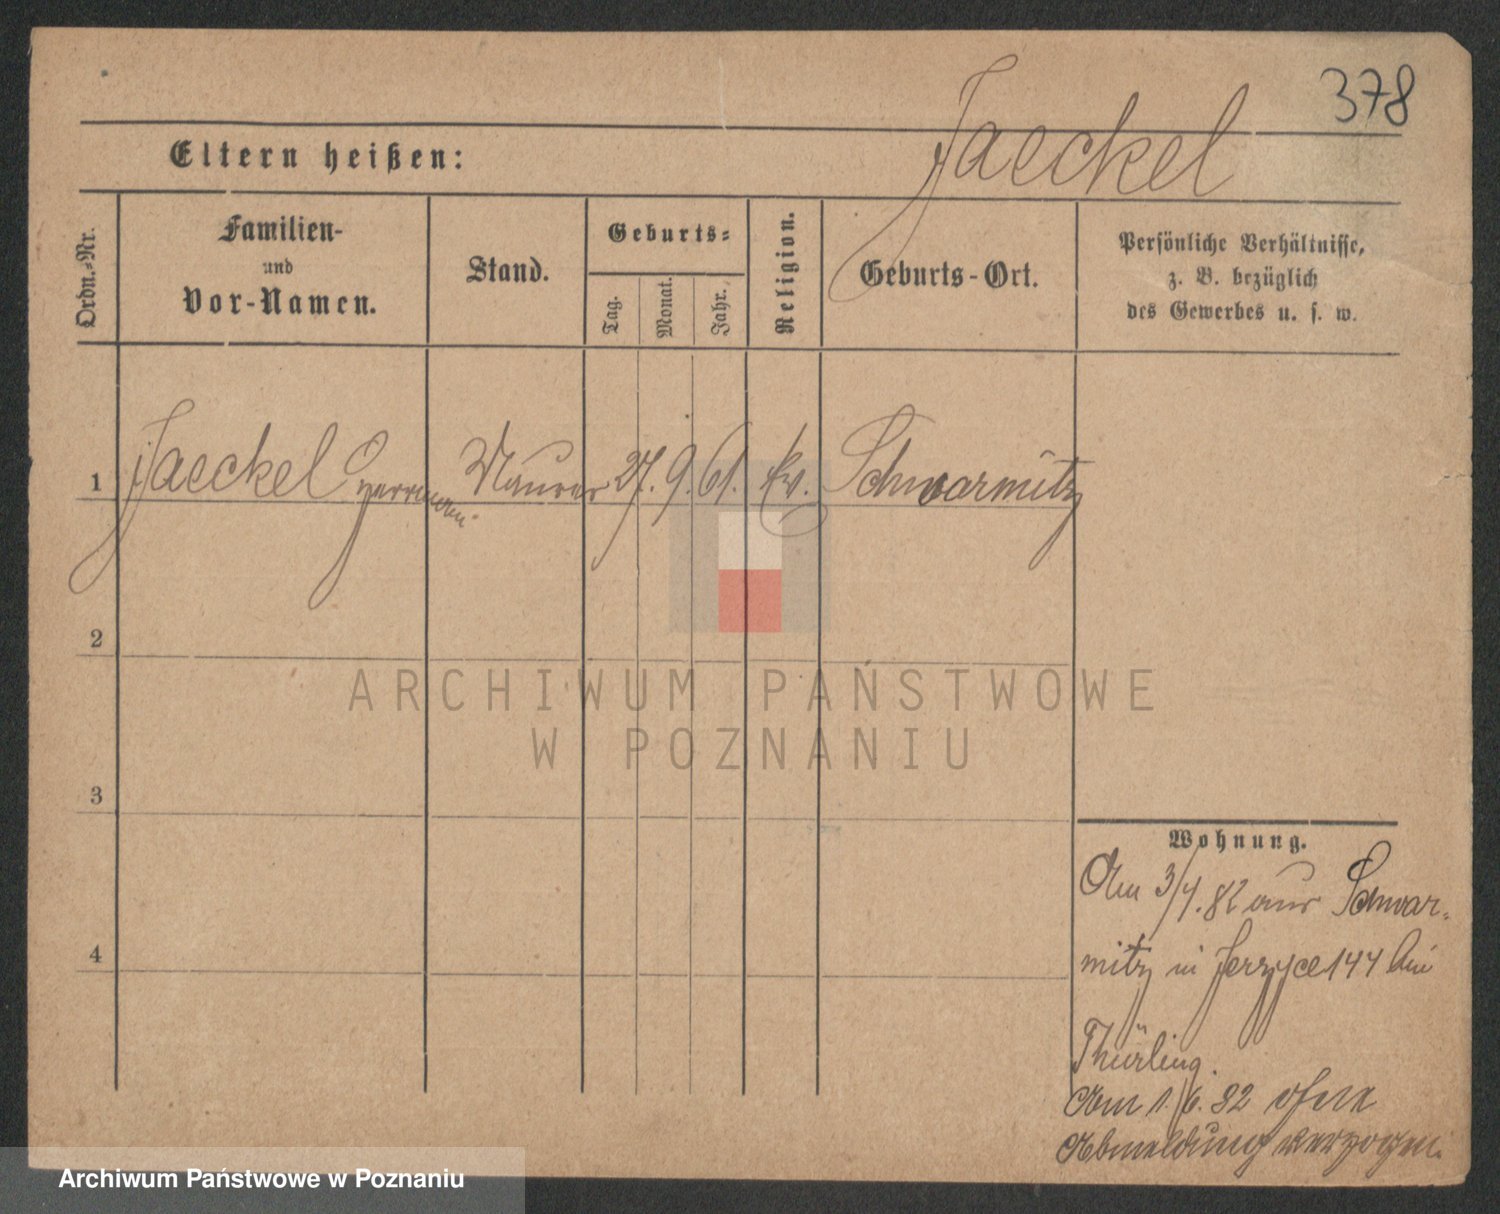 378
Jaeckel
Eltern heißen:
Ordn.-Nr.
Familien-
und
Vor-Namen.
Stand.
Geburts-
Tag.
Monat.
Jahr.
Religion.
Geburts-Ort.
Persönliche Verhältnisse,
z. B. bezüglich
des Gewerbes u. s. w.
1 Jaeckel Herrmann Maurer 27. 9. 61. kv. Schwarmitz
2
3
4
Wohnung.
Am 3/4. 82 aus Schwar-
mitz in Jerzyce 144 bei
Thürling.
Am 1./6. 82 ohne
Abmeldung verzogen.
ARCHIWUM PAŃSTWOWE
W POZNANIU
Archiwum Państwowe w Poznaniu